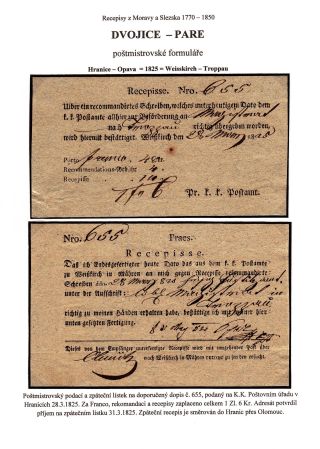 Recepisy z Moravy a Slezska 1770 – 1850
DVOJICE – PARE
poštmistrovské formuláře
Hranice – Opava = 1825 = Weisskirch – Troppau
Recepisse. Nro. 655
Ueber ein recommandirtes Schreiben, welches unter heutigem Dato dem
k. k. Postamte allhier zur Beförderung an
nach Troppau richtig übergeben worden,
wird hiermit bestättiget. Weiskirch den 28 März 1825
Porto franco
Recommandations-Gebühr 4
Recepisse
Pr. k. k. Postamt.
Nro. 655 Praes.
Recepisse.
Daß ich Endesgefertigter heute Dato das aus dem k. k. Postamte
zu Weiskirch in Mähren an mich gegen Recepisse rekommandirte
Schreiben
unter der Aufschrift:
Troppau
richtig zu meinen Händen erhalten habe, bestättige ich mit
gesetzten Fertigung.
Dieses von dem Empfänger unterfertigte Recepisse wird mit umgehender Post über
Olmütz nach Weiskirch in Mähren retour zu
Poštmistrovský podací a zpáteční lístek na doporučený dopis č. 655, podaný na K.K. Poštovním úřadu v
Hranicích 28.3.1825. Za Franco, rekomandaci a recepisy zaplaceno celkem 1 Zl. 6 Kr. Adresát potvrdil
příjem na zpátečním lístku 31.3.1825. Zpáteční recepis je směrován do Hranic přes Olomouc.